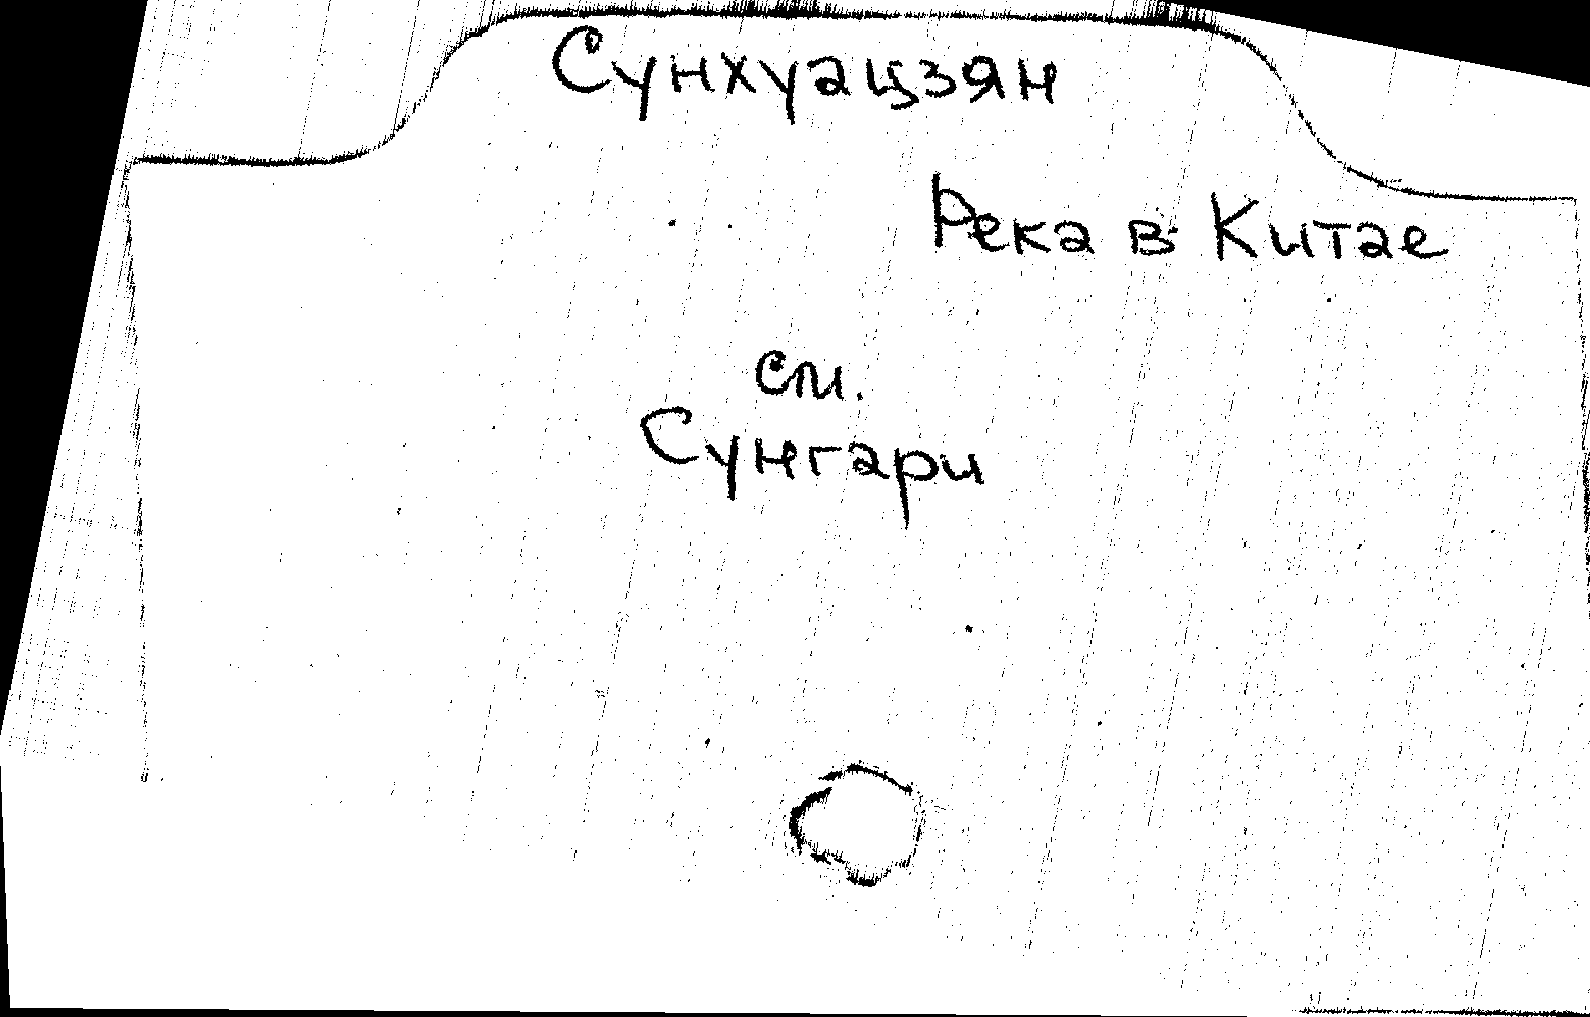 Сунхуацзян
Река в Китае
см.
Сунгари